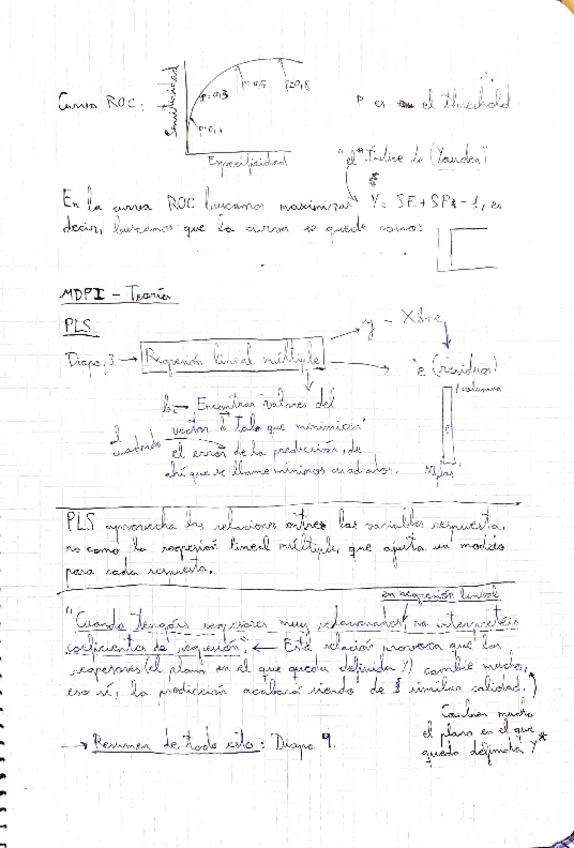 Curva ROC:
Sensitividad
P=0,1
P=0,3
P=0,5
P=0,8
Especificidad
P es el threshold
"el" Índice de (Youden)
En la curva ROC buscamos maximizar Y = SE + SP - 1, es
decir, buscamos que la curva se quede como:
MDPI - Teoría
PLS
Diapo. 3 → Regresión lineal múltiple
y - Xb+e
e (residuos)
1 columna
e
N filas
b → Encontrar valores del
vector b tal que minimicen
el error de la predicción, de
ahí que se llame mínimos cuadrados.
al cuadrado
PLS aprovecha las relaciones entre las variables respuesta,
no como la regresión lineal múltiple, que ajusta un modelo
para cada respuesta.
en regresión lineal
"Cuando tengáis regresores muy relacionados, no interpretéis
coeficientes de regresión." ← Esta relación provoca que los
regresores (el plano en el que queda definida Y) cambie mucho,
eso sí, la predicción acabará siendo de similar calidad.
Cambian mucho
el plano en el que
queda definida Y *
→ Resumen de todo esto: Diapo 9.